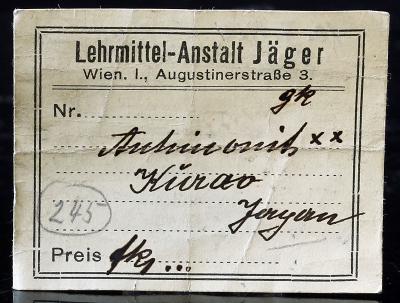 Lehrmittel-Anstalt Jäger
Wien. I., Augustinerstraße 3.
gk
Nr.
Antimonit xx
Kurao
Japan
245
Preis